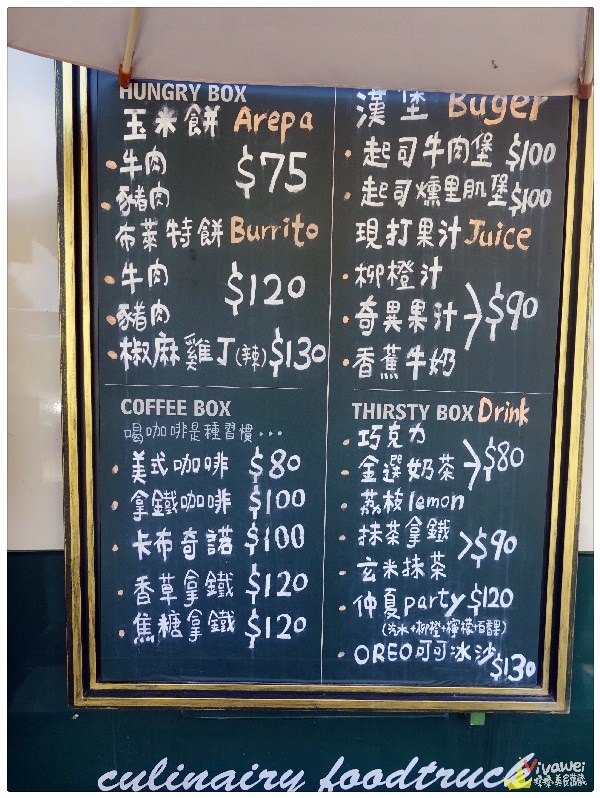 HUNGRY BOX
玉米餅 Arepa
牛肉
豬肉
$75
布萊特餅 Burrito
牛肉
豬肉
$120
椒麻雞丁(辣) $130
漢堡 Buger
起司牛肉堡 $100
起司燻里肌堡 $100
現打果汁 Juice
柳橙汁
奇異果汁
$90
香蕉牛奶
COFFEE BOX
喝咖啡是種習慣...
美式咖啡 $80
拿鐵咖啡 $100
卡布奇諾 $100
香草拿鐵 $120
焦糖拿鐵 $120
THIRSTY BOX Drink
巧克力
金選奶茶
$80
荔枝lemon
抹茶拿鐵
$90
玄米抹茶
仲夏party $120
(汽水+柳橙+檸檬+百香果)
OREO可可冰沙 $130
culinairy foodtruck
Vivawei